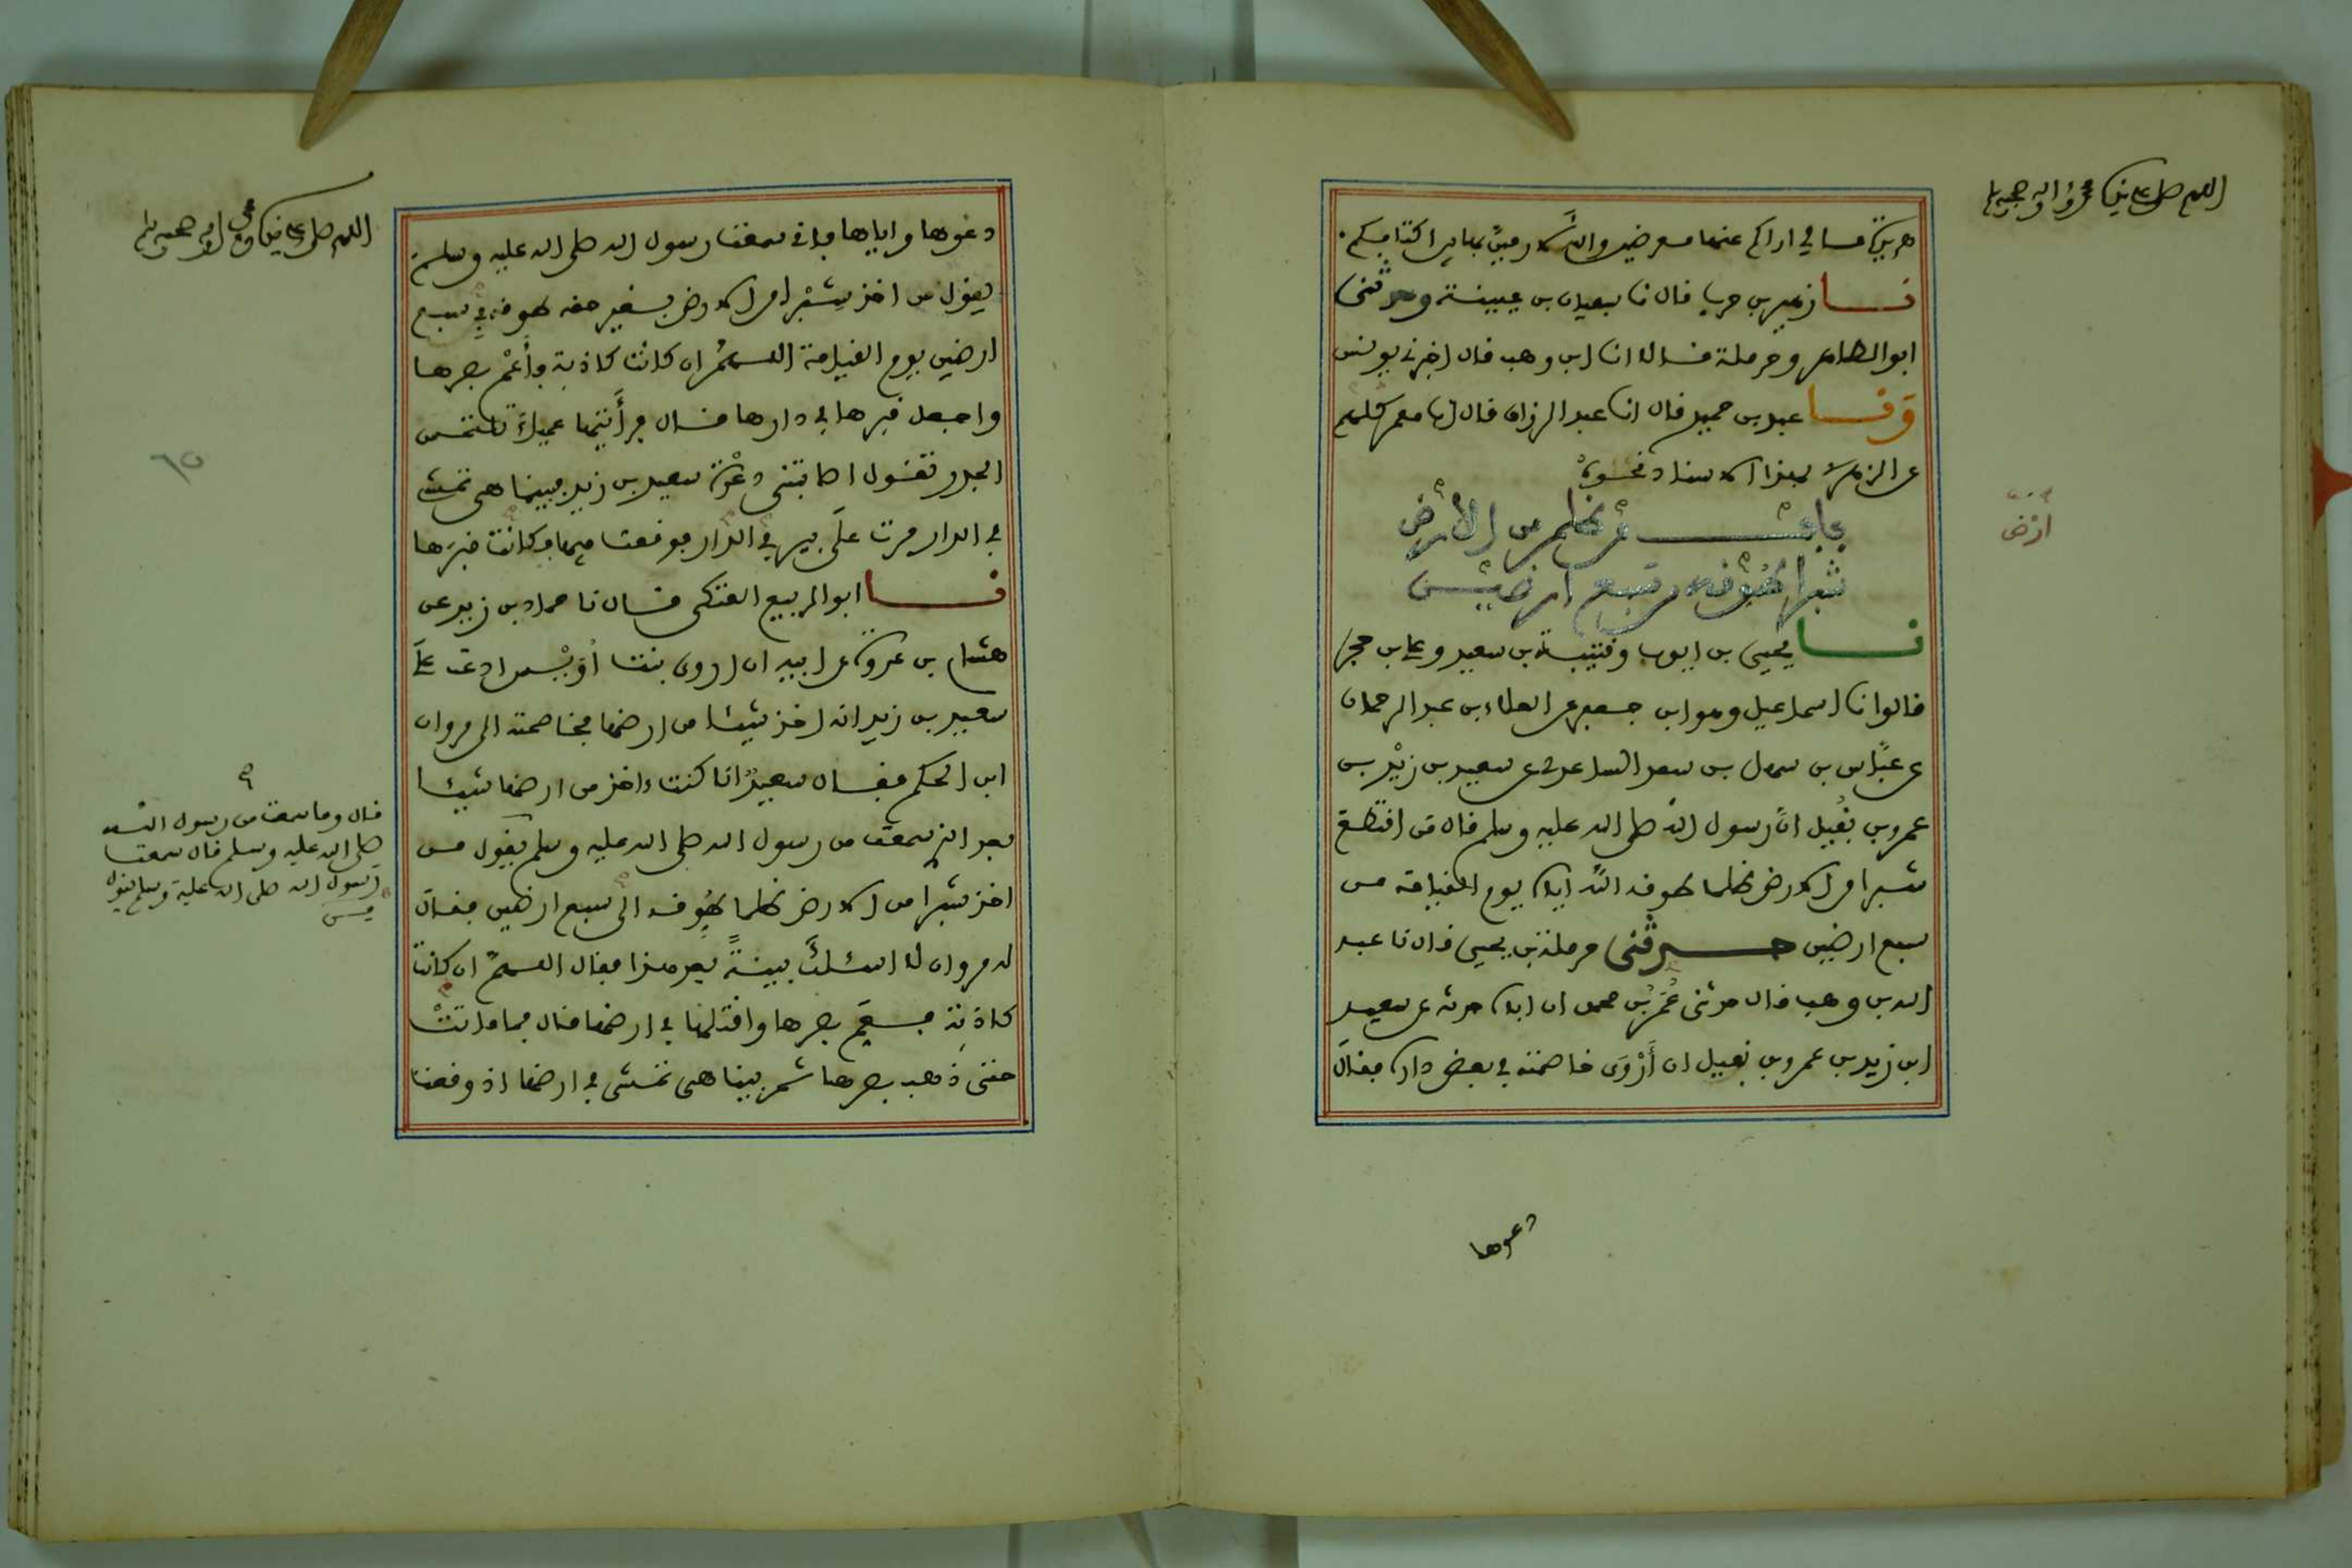 اللهم صل على سيدنا محمد واله وصحبه وسلم
هريرة مالي اراكم عنها معرضين والله لارمين بها بين اكتافكم.
نا زهير بن حرب قال نا سفيان بن عيينة وحدثنى
ابو الطاهر وحرملة قالا انا ابن وهب قال اخبرني يونس
وَنا عبد بن حميد قال انا عبد الرزاق قال انا معمر كلهم
عن الزهري بهذا الاسناد نحوه
باب من ظلم من الارض
شبرا طوقه من سبع ارضين
نا يحيى بن ايوب وقتيبة بن سعيد وعلي بن حجر
قالوا نا اسماعيل وهو ابن جعفر عن العلاء بن عبد الرحمان
عن عباس بن سهل بن سعد الساعدي عن سعيد بن زيد بن
عمرو بن نفيل ان رسول الله صلى الله عليه وسلم قال من اقتطع
شبرا من الارض ظلما طوقه الله اياه يوم القيامة من
سبع ارضين حدثنى حرملة بن يحيى قال نا عبد
الله بن وهب قال حدثنى عُمَرُ بن محمد ان اباه حدثه عن سعيد
ابن زيد بن عمرو بن نفيل ان أَرْوَى خاصمته في بعض داره فقال
ارْض
دعوها
اللهم صل على سيدنا محمد واله وصحبه وسلم
دعوها واياها فاني سمعت رسول الله صلى الله عليه وسلم
يقول من اخذ شِبْرا من الارض بغير حقه طوقه في سبع
ارضين يوم القيامة اللهمَّ ان كانت كاذبة فأَعْمِ بصرها
واجعل قبرها في دارها قال فرأَيتها عمياءَ تلتمس
الجدر تقول اصابتنى دعْوَة سعيد بن زيد فبينما هى تمشى
في الدار مرت علَى بير في الدار فوقعت فيها فكانت قبرَها
نا ابو الربيع العتكى قال نا حماد بن زيد عن
هشام بن عروة عن ابيه ان اروى بنت أُوَيْس ادعت علَى
سعيد بن زيد انه اخذ شيئا من ارضها فخاصمته الى مروان
ابن الحكم فقال سعيدٌ انا كنت ءاخذ من ارضها شيئا
بعد الذي سمعت من رسول الله صلى الله عليه وسلم يقول من
اخذ شبرا من الارض ظلما طُوِقه الى سبع ارضين فقال
له مروان لا اسئلكَ بينةً بعد هذا فقال اللهمَّ ان كانت
كاذبة فعَمِّ بصرها واقتلها في ارضها قال فما ماتتْ
حتى ذهب بصرها ثم بينا هى تمشى في ارضها اذ وقعت
٦٥
قال وما سمعت من رسول الله
صلى الله عليه وسلم قال سمعت
رسول الله صلى الله عليه وسلم يقول
من